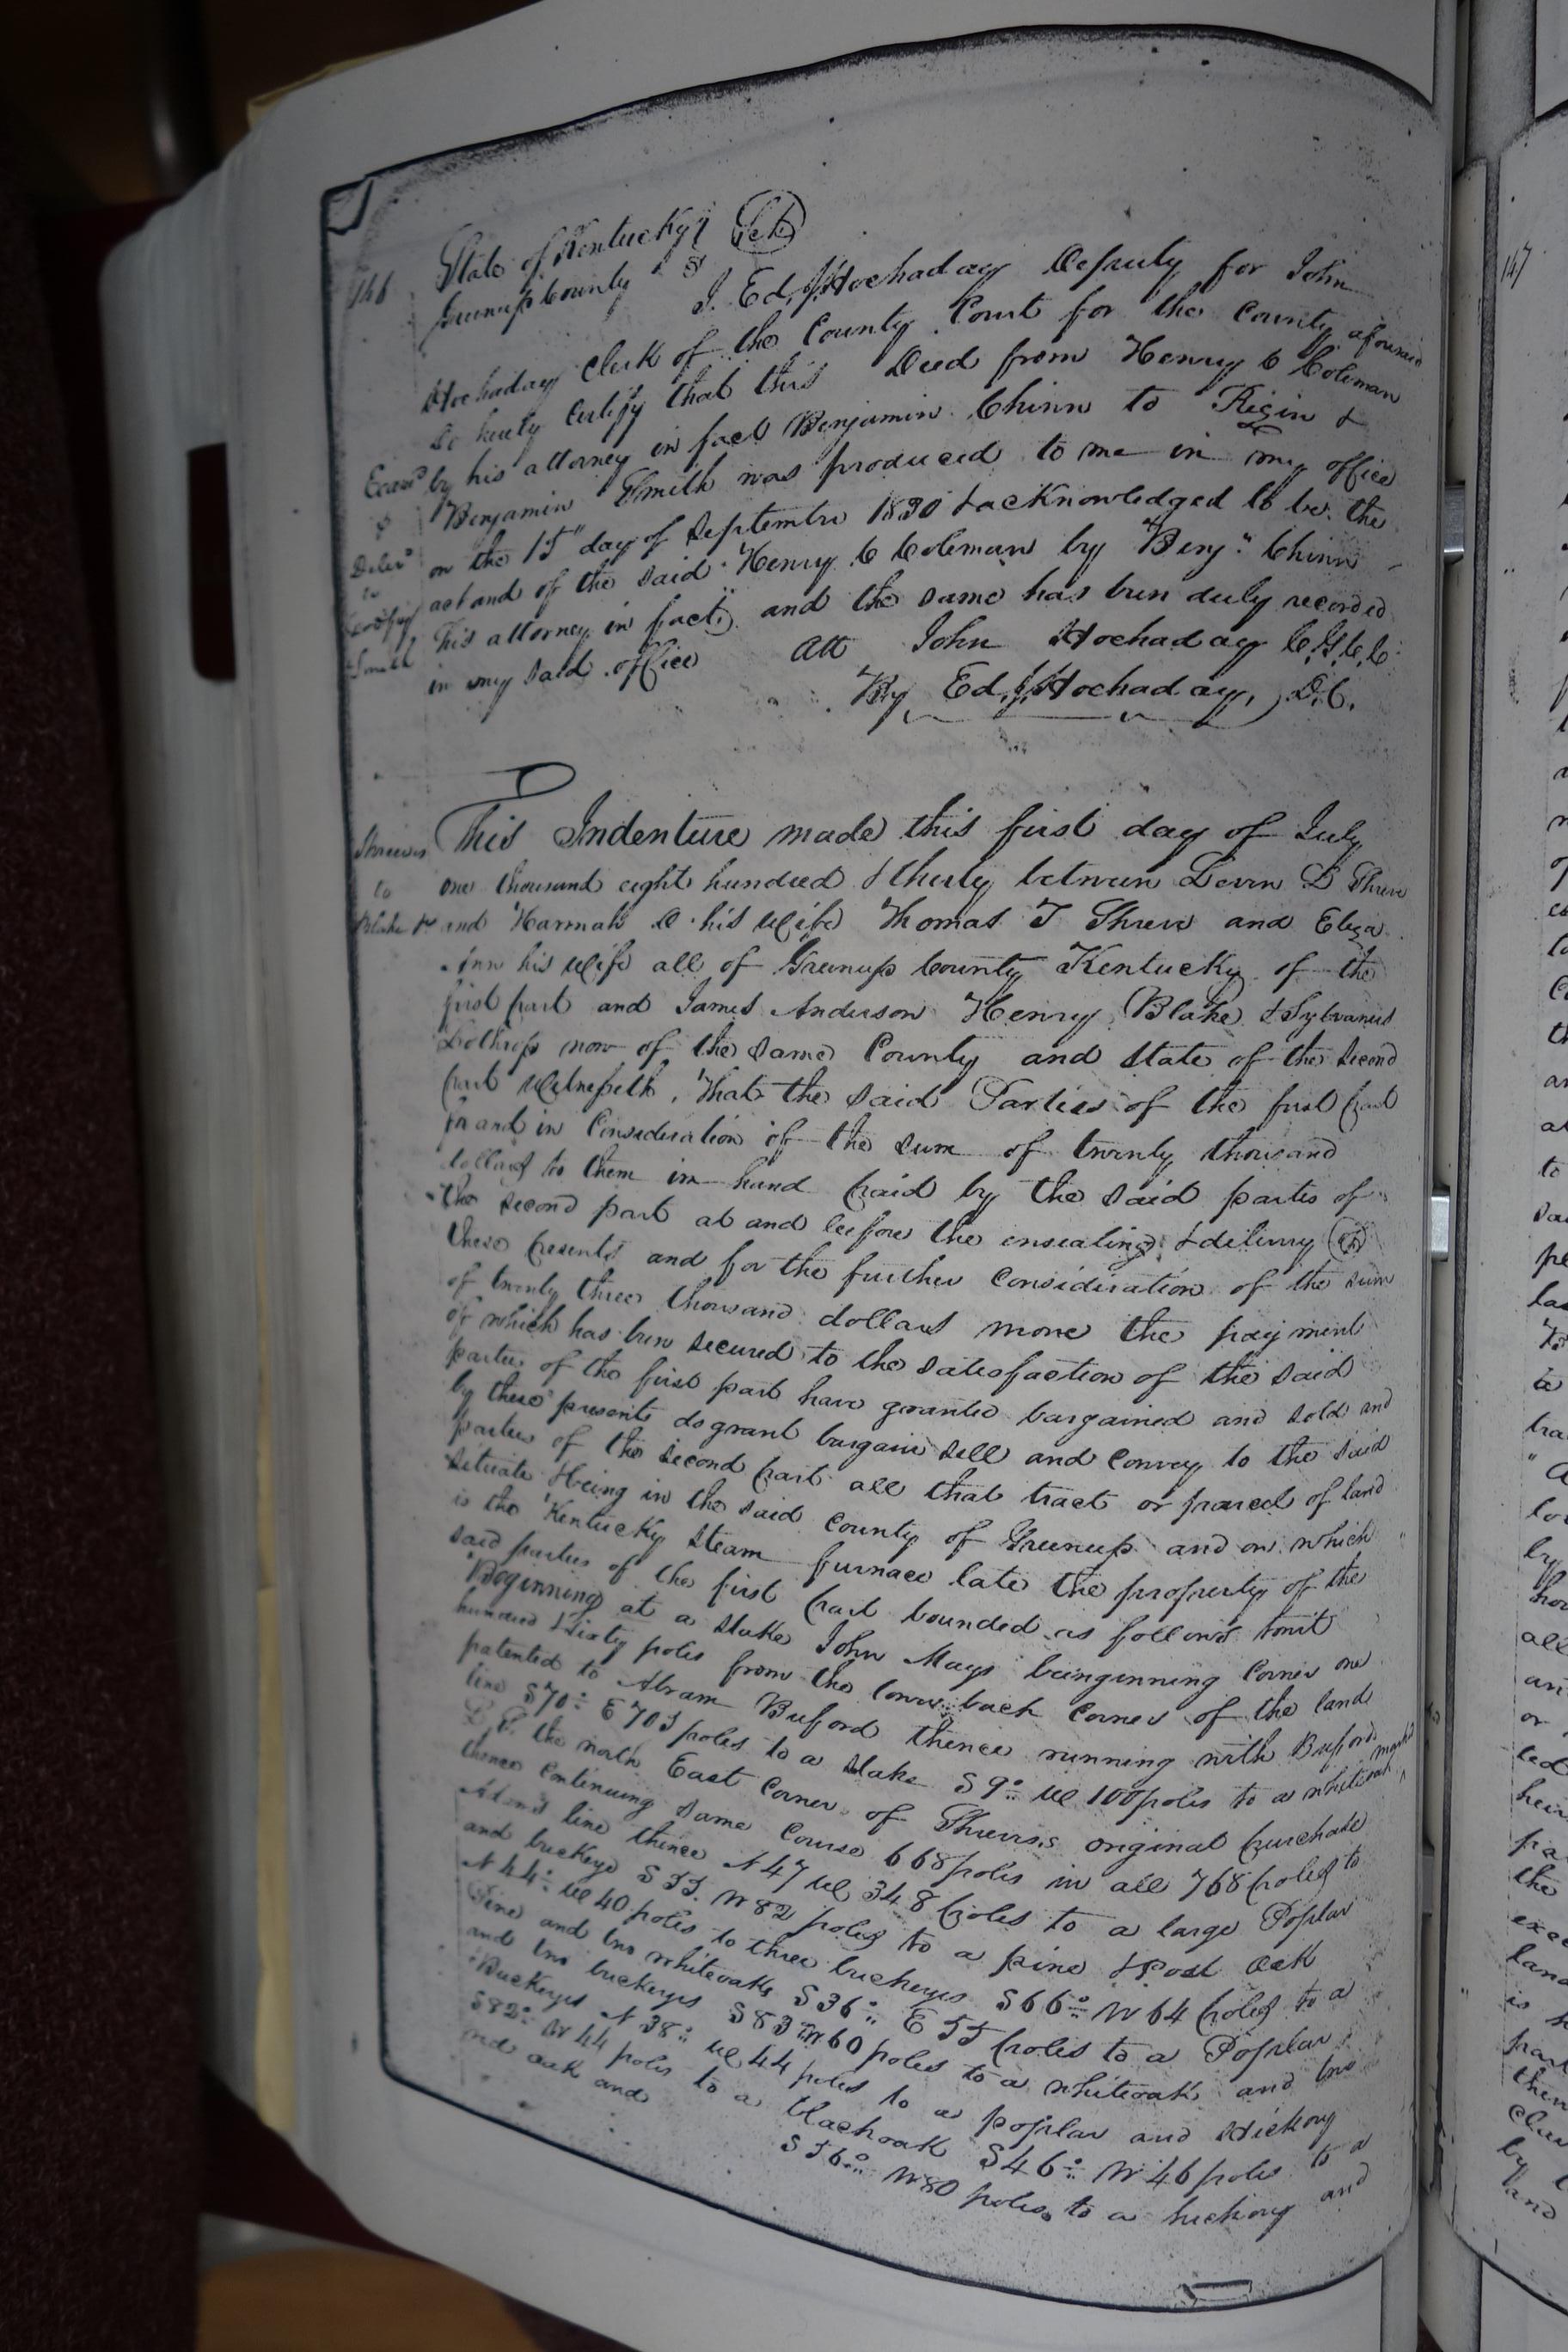 146
State of Kentucky Sct
Greenup County
I. Ed. Hockaday Deputy for John
Hockaday Clerk of the County Court for the County aforesaid
do hereby Certify that this Deed from Henry C Coleman
by his attorney in fact Benjamin Chinn to Rezin &
Benjamin Smith was produced to me in my office
on the 15" day of Septembre 1830 & acKnowledged to be the
act and of the said Henry C Coleman by Benj. Chinn
his attorney in fact and the same has been duly recorded
in my said office Att John Hockaday C.G.C.C.
By Ed. Hockaday, D.C.
Exam'd
&
Deliv'd
to
Smith
Shreves
to
Blake &c
This Indenture made this first day of July
one thousand eight hundred & thirty between Leven L Shreve
and Hannah D his wife Thomas T Shreve and Eliza
Ann his wife all of Greenup County Kentucky of the
first part and James Anderson Henry Blake & Sylvanus
Lothrop now of the same County and State of the second
part Witnesseth, That the said Parties of the first part
for and in Consideration of the sum of twenty thousand
dollars to them in hand paid by the said parties of
the second part at and before the ensealing & delivery of
these presents and for the further consideration of the sum
of twenty three thousand dollars more the payment
of which has been secured to the satisfaction of the said
parties of the first part have granted bargained and sold and
by these presents do grant bargain sell and Convey to the said
parties of the second part all that tract or parcel of land
situate & being in the said County of Greenup and on which
is the Kentucky Steam furnace late the property of the
said parties of the first part bounded as follows towit
Beginning at a stake John Mays beinginning Corner one
hundred & sixty poles from the lower back Corner of the land
patented to Abram Buford thence running with Bufords
line S70° E 703 poles to a stake S9° W 100 poles to a whiteoak marked
L.S. the north East Corner of Shreves original purchase
thence Continuing same Course 668 poles in all 768 poles to
line thence N47 W 348 poles to a large Poplar
and buckeye S55. W82 poles to a pine & Post Oak
N44° W 40 poles to three buckeyes S66° W64 poles to a
Pine and two whiteoaks S36° E55 poles to a Poplar
and two buckeyes S83 W60 poles to a whiteoak and two
Buckeyes N38° W 44 poles to a poplar and Hickory
S82° W44 poles to a blackoak S46° W46 poles to a
red oak and S56° W80 poles to a hickory and
147